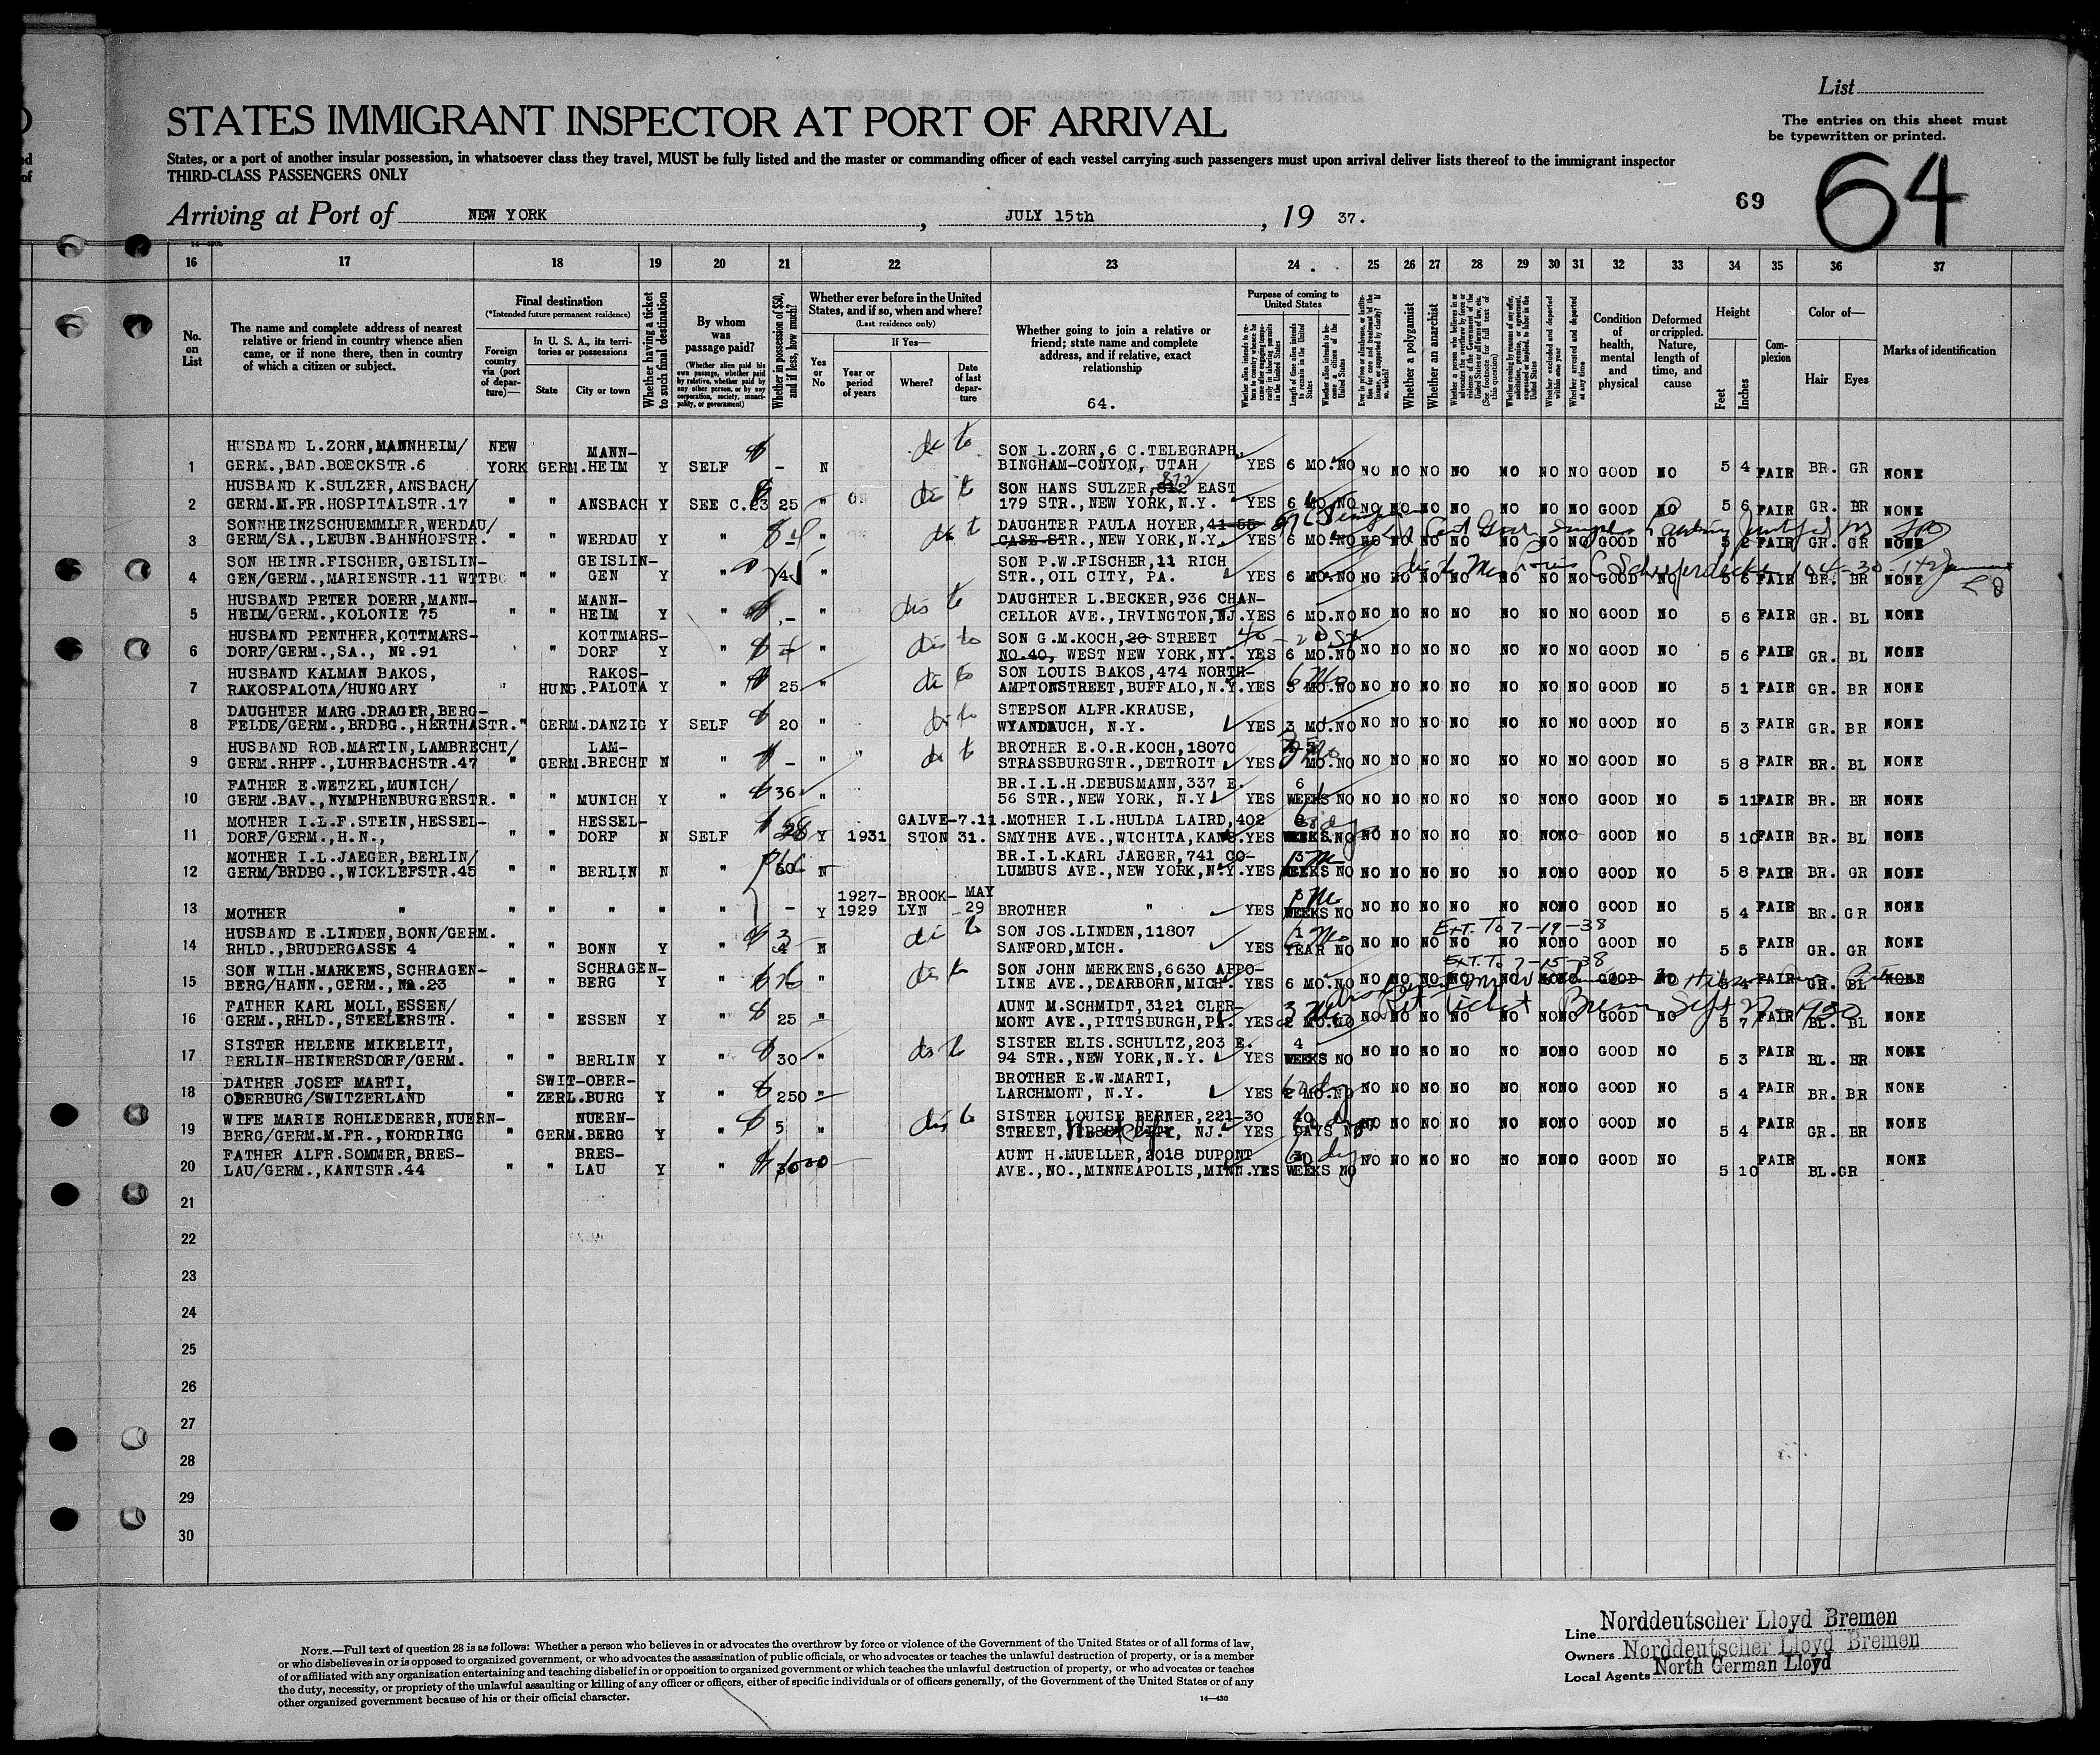 List
STATES IMMIGRANT INSPECTOR AT PORT OF ARRIVAL
The entries on this sheet must
be typewritten or printed.
States, or a port of another insular possession, in whatsoever class they travel, MUST be fully listed and the master or commanding officer of each vessel carrying such passengers must upon arrival deliver lists thereof to the immigrant inspector
THIRD-CLASS PASSENGERS ONLY
69 64
Arriving at Port of NEW YORK, JULY 15th, 19 37.
16 17 18 19 20 21 22 23 24 25 26 27 28 29 30 31 32 33 34 35 36 37
No. on List
The name and complete address of nearest relative or friend in country whence alien came, or if none there, then in country of which a citizen or subject.
Final destination
(*Intended future permanent residence)
Foreign country via (port of departure)—
In U. S. A., its territories or possessions
State
City or town
Whether having a ticket to such final destination
By whom was passage paid?
(Whether alien paid his own passage, whether paid by relative, whether paid by any other person, or by any corporation, society, municipality, or government)
Whether in possession of $50, and if less, how much?
Whether ever before in the United States, and if so, when and where?
(Last residence only)
Yes or No
If Yes—
Year or period of years
Where?
Date of last departure
Whether going to join a relative or friend; state name and complete address, and if relative, exact relationship
64.
Purpose of coming to United States
Length of time alien intends to remain in the United States
Whether alien intends to become a citizen of the United States
Whether a polygamist
Whether an anarchist
Whether excluded and deported within one year
Whether arrested and deported at any time
Condition of health, mental and physical
Deformed or crippled. Nature, length of time, and cause
Height
Feet
Inches
Complexion
Color of—
Hair
Eyes
Marks of identification
HUSBAND L.ZORN,MANNHEIM/ NEW MANN- SON L.ZORN,6 C.TELEGRAPH,
1 GERM.,BAD.BOECKSTR.6 YORK GERM.HEIM Y SELF - N BINGHAM-CONYON, UTAH YES 6 MO.NO NO NO NO NO NO NO NO GOOD NO 5 4 FAIR BR. GR NONE
HUSBAND K.SULZER,ANSBACH/ SON HANS SULZER, EAST
2 GERM.M.FR.HOSPITALSTR.17 " " ANSBACH Y SEE C.23 25 " 179 STR.,NEW YORK,N.Y. YES 6 MO.NO NO NO NO NO NO NO NO GOOD NO 5 6 FAIR GR. BR NONE
SONNHEINZSCHUEMMLER,WERDAU/ DAUGHTER PAULA HOYER,41-55
3 GERM/SA.,LEUBN.BAHNHOFSTR. " " WERDAU Y " " CASE STR.,NEW YORK,N.Y. YES 6 MO.NO NO NO NO NO NO NO NO GOOD NO 5 2 FAIR GR. GR NONE
SON HEINR.FISCHER,GEISLIN- GEISLIN- SON P.W.FISCHER,11 RICH
4 GEN/GERM.,MARIENSTR.11 WTTBG " " GEN Y " " STR.,OIL CITY, PA. YES 6 MO.NO NO NO NO NO NO NO NO GOOD NO 5 6 FAIR BR. BR NONE
HUSBAND PETER DOERR,MANN- MANN- DAUGHTER L.BECKER,936 CHAN-
5 HEIM/GERM.,KOLONIE 75 " " HEIM Y " - " CELLOR AVE.,IRVINGTON,NJ.YES 6 MO.NO NO NO NO NO NO NO NO GOOD NO 5 6 FAIR GR. BL NONE
HUSBAND PENTHER,KOTTMARS- KOTTMARS- SON G.M.KOCH,20 STREET 40 - 20 St
6 DORF/GERM.,SA., No.91 " " DORF Y " " NO.40, WEST NEW YORK,NY. YES 6 MO.NO NO NO NO NO NO NO NO GOOD NO 5 6 FAIR GR. BL NONE
HUSBAND KALMAN BAKOS, RAKOS- SON LOUIS BAKOS,474 NORTH- 6 Mo
7 RAKOSPALOTA/HUNGARY " HUNG.PALOTA Y " 25 " AMPTONSTREET,BUFFALO,N.Y.YES 3 MO.NO NO NO NO NO NO NO NO GOOD NO 5 1 FAIR GR. BR NONE
DAUGHTER MARG.DRAGER,BERG- STEPSON ALFR.KRAUSE,
8 FELDE/GERM.,BRDBG.,HERTHASTR." GERM.DANZIG Y SELF 20 " WYANDAUCH, N.Y. YES 3 MO.NO NO NO NO NO NO NO NO GOOD NO 5 3 FAIR GR. BR NONE
HUSBAND ROB.MARTIN,LAMBRECHT/ LAM- BROTHER E.O.R.KOCH,18070
9 GERM.RHPF.,LUHRBACHSTR.47 " GERM.BRECHT N " - " STRASSBURGSTR.,DETROIT YES MO.NO NO NO NO NO NO NO NO GOOD NO 5 8 FAIR BR. BL NONE
FATHER E.WETZEL,MUNICH/ BR.I.L.H.DEBUSMANN,337 E. 6
10 GERM.BAV.,NYMPHENBURGERSTR. " " MUNICH Y " 36 " 56 STR.,NEW YORK, N.Y. YES WEEKS NO NO NO NO NO NO NO NO GOOD NO 5 11 FAIR BR. BR NONE
MOTHER I.L.F.STEIN,HESSEL- HESSEL- GALVE-7.11.MOTHER I.L.HULDA LAIRD,402
11 DORF/GERM.,H.N., " " DORF N SELF 28 Y 1931 STON 31. SMYTHE AVE.,WICHITA,KANS.YES WEEKS.NO NO NO NO NO NO NO NO GOOD NO 5 10 FAIR BR. BL NONE
MOTHER I.L.JAEGER,BERLIN/ BR.I.L.KARL JAEGER,741 CO-
12 GERM/BRDBG.,WICKLEFSTR.45 " " BERLIN N " 60 N LUMBUS AVE.,NEW YORK,N.Y.YES WEEKS NO NO NO NO NO NO NO NO GOOD NO 5 8 FAIR BR. GR NONE
1927- BROOK- MAY
13 MOTHER " " " " " " - Y 1929 LYN 29 BROTHER " YES WEEKS NO NO NO NO NO NO NO NO GOOD NO 5 4 FAIR BR. GR NONE
HUSBAND E.LINDEN,BONN/GERM. SON JOS.LINDEN,11807 1 EXT. TO 7-19-38
14 RHLD.,BRUDERGASSE 4 " " BONN Y " 4 N SANFORD,MICH. YES YEAR NO NO NO NO NO NO NO NO GOOD NO 5 5 FAIR GR. GR NONE
SON WILH.MARKENS,SCHRAGEN- SCHRAGEN- SON JOHN MERKENS,6630 APPO- EXT. TO 7-15-38
15 BERG/HANN.,GERM.,No.23 " " BERG Y " " LINE AVE.,DEARBORN,MICH. YES 6 MO.NO NO NO NO NO NO NO NO GOOD NO 5 4 FAIR GR. BL NONE
FATHER KARL MOLL,ESSEN/ AUNT M.SCHMIDT,3121 CLER-
16 GERM.,RHLD.,STEELERSTR. " " ESSEN Y " 25 " MONT AVE.,PITTSBURGH,PA. YES 2 MO.NO NO NO NO NO NO NO NO GOOD NO 5 7 FAIR BL. BL NONE
SISTER HELENE MIKELEIT, SISTER ELIS.SCHULTZ,203 E. 4
17 BERLIN-HEINERSDORF/GERM. " " BERLIN Y " 30 " 94 STR.,NEW YORK,N.Y. YES WEEKS NO NO NO NO NO NO NO NO GOOD NO 5 3 FAIR BL. BR NONE
DATHER JOSEF MARTI, SWIT-OBER- BROTHER E.W.MARTI,
18 OBERBURG/SWITZERLAND " ZERL.BURG Y " 250 " LARCHMONT, N.Y. YES 2 MO.NO NO NO NO NO NO NO NO GOOD NO 5 4 FAIR BR. BR NONE
WIFE MARIE ROHLEDERER,NUERN- NUERN- SISTER LOUISE BERNER,221-30 40
19 BERG/GERM.M.FR.,NORDRING " GERM.BERG Y " 5 " STREET, NJ. YES DAYS NO NO NO NO NO NO NO NO GOOD NO 5 4 FAIR GR. BR NONE
FATHER ALFR.SOMMER,BRES- BRES- AUNT H.MUELLER,2018 DUPONT
20 LAU/GERM.,KANTSTR.44 " " LAU Y " AVE.,NO.,MINNEAPOLIS,MINN.YES WEEKS NO NO NO NO NO NO NO NO GOOD NO 5 10 FAIR BL.GR NONE
21
22
23
24
25
26
27
28
29
30
NOTE.—Full text of question 28 is as follows: Whether a person who believes in or advocates the overthrow by force or violence of the Government of the United States or of all forms of law,
or who disbelieves in or is opposed to organized government, or who advocates the assassination of public officials, or who advocates or teaches the unlawful destruction of property, or is a member
of or affiliated with any organization entertaining and teaching disbelief in or opposition to organized government or which teaches the unlawful destruction of property, or who advocates or teaches
the duty, necessity, or propriety of the unlawful assaulting or killing of any officer or officers, either of specific individuals or of officers generally, of the Government of the United States or of any
other organized government because of his or their official character.
14—430
Line Norddeutscher Lloyd Bremen
Owners Norddeutscher Lloyd Bremen
Local Agents North German Lloyd